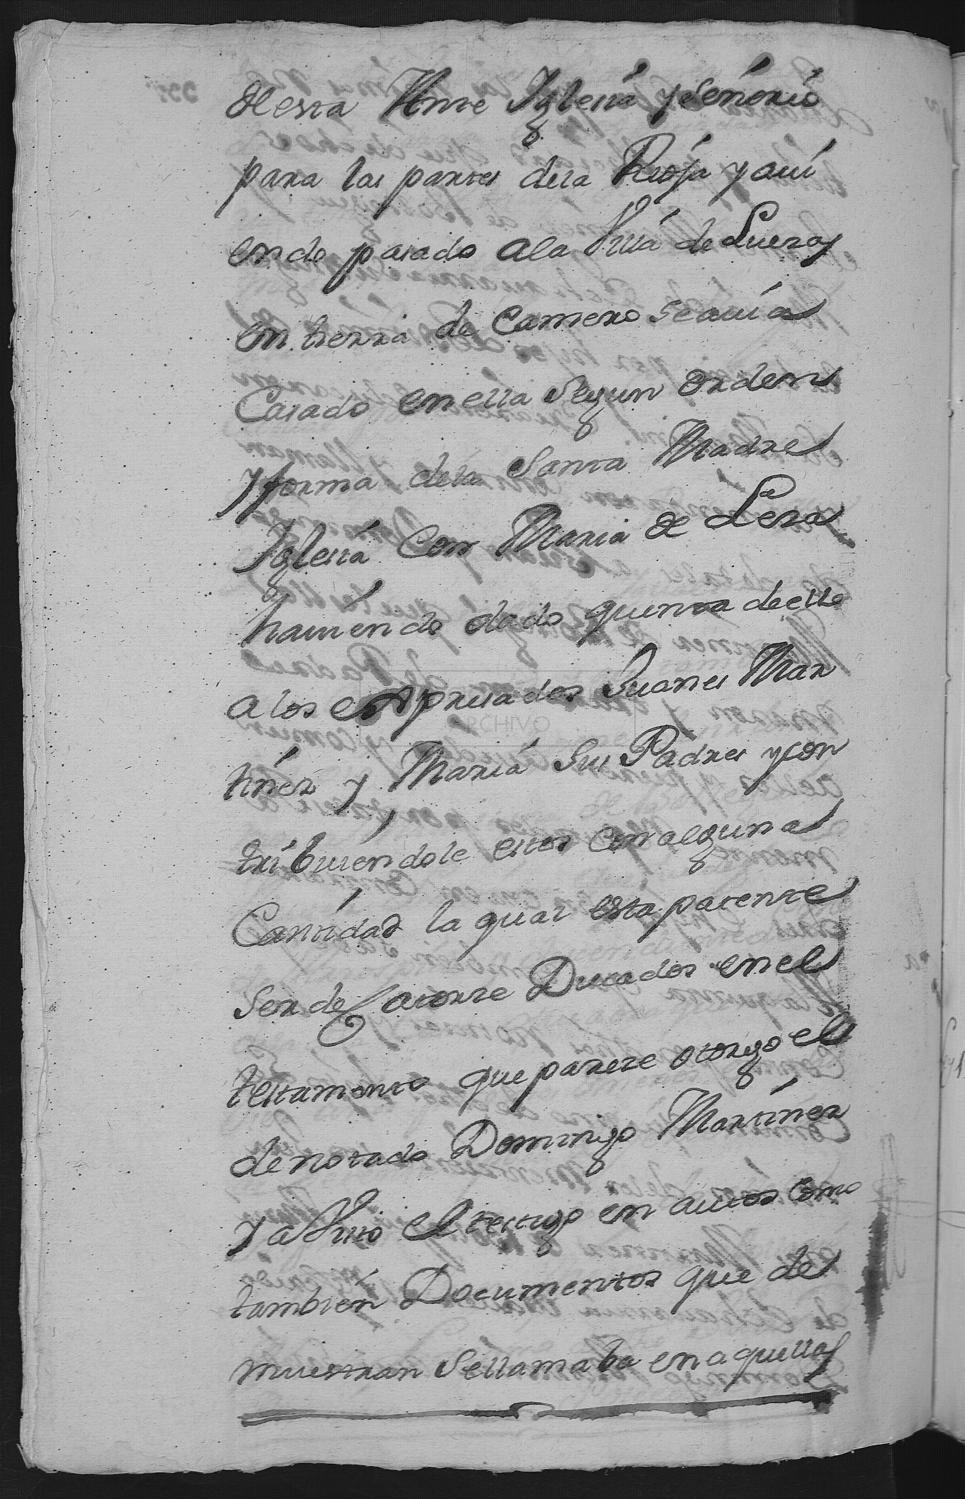 desta Antte Iglesia y señorio
para las partes dela Rioja y aui
endo pasado ala Villa de Luezas
en tierra de Camero se auia
Casado en ella Segun orden
y forma dela Santa Madre
Iglesia Con Maria de Leza
hauiendo dado quenta de ello
a los expresados Juanes Mar
tinez y Maria Sus Padres y con
tribuiendole estos Con alguna
Cantidad la qual esta patente
ser de Catorze Ducados en el
testamento que pareze otorgo el
denotado Domingo Martinez
y a Visto el testigo en autos como
tambien Documentos que de
muestran se llamaba en aquella
ARCHIVO